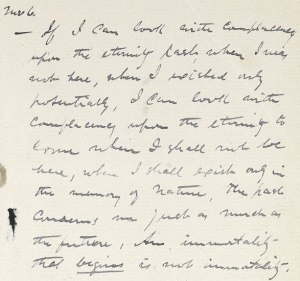 Nov 6.
— If I can look with complacency
upon the eternity past when I was
not here, when I existed only
potentially, I can look with
complacency upon the eternity to
come when I shall not be
here, when I shall exist only in
the memory of Nature. The past
concerns me just as much as
the future. An immortality
that begins is not immortality.